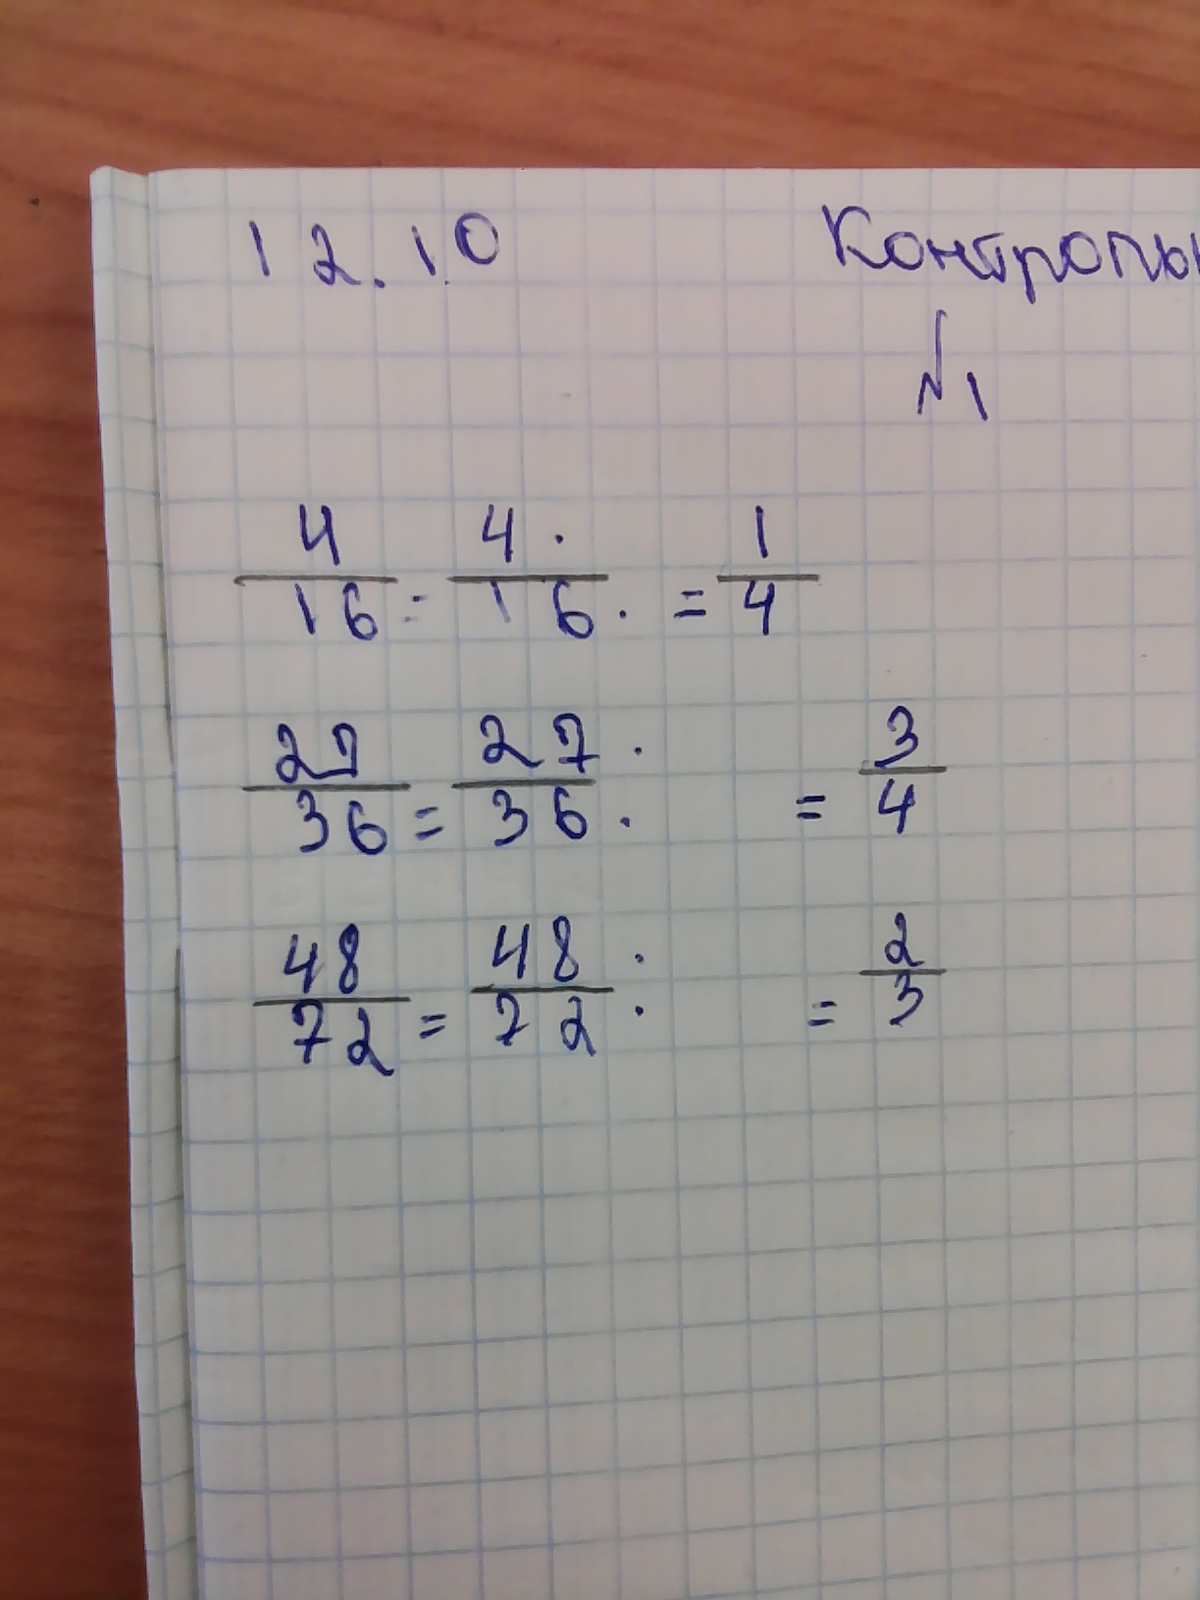 12.10 Контроль
№1
4/16 = 4 ·/16 · = 1/4
27/36 = 27 ·/36 · = 3/4
48/72 = 48 :/72 : = 2/3